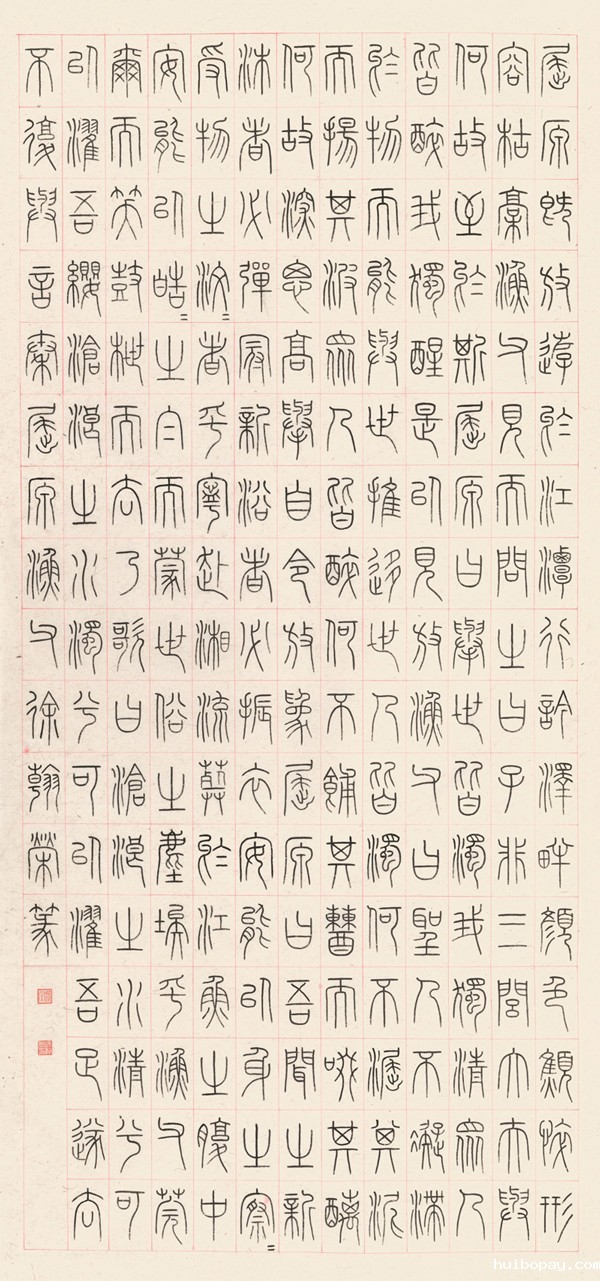 屈原既放遊於江潭行訡澤畔顏色顦悴形
容枯槀漁父見而問之曰子非三閭大夫與
何故至於斯屈原曰舉世皆濁我獨清眾人
皆醉我獨醒是以見放漁父曰聖人不凝滯
於物而能與世推移世人皆濁何不淈其泥
而揚其波眾人皆醉何不餔其糟而啜其醨
何故深思高舉自令放為屈原曰吾聞之新
沐者必彈冠新浴者必振衣安能以身之察=
受物之汶=者乎寧赴湘流葬於江魚之腹中
安能以皓=之白而蒙世俗之塵埃乎漁父莞
爾而笑鼓枻而去乃歌曰滄浪之水清兮可
以濯吾纓滄浪之水濁兮可以濯吾足遂去
不復與言秦屈原漁父徐翰榮篆
huibopay.com